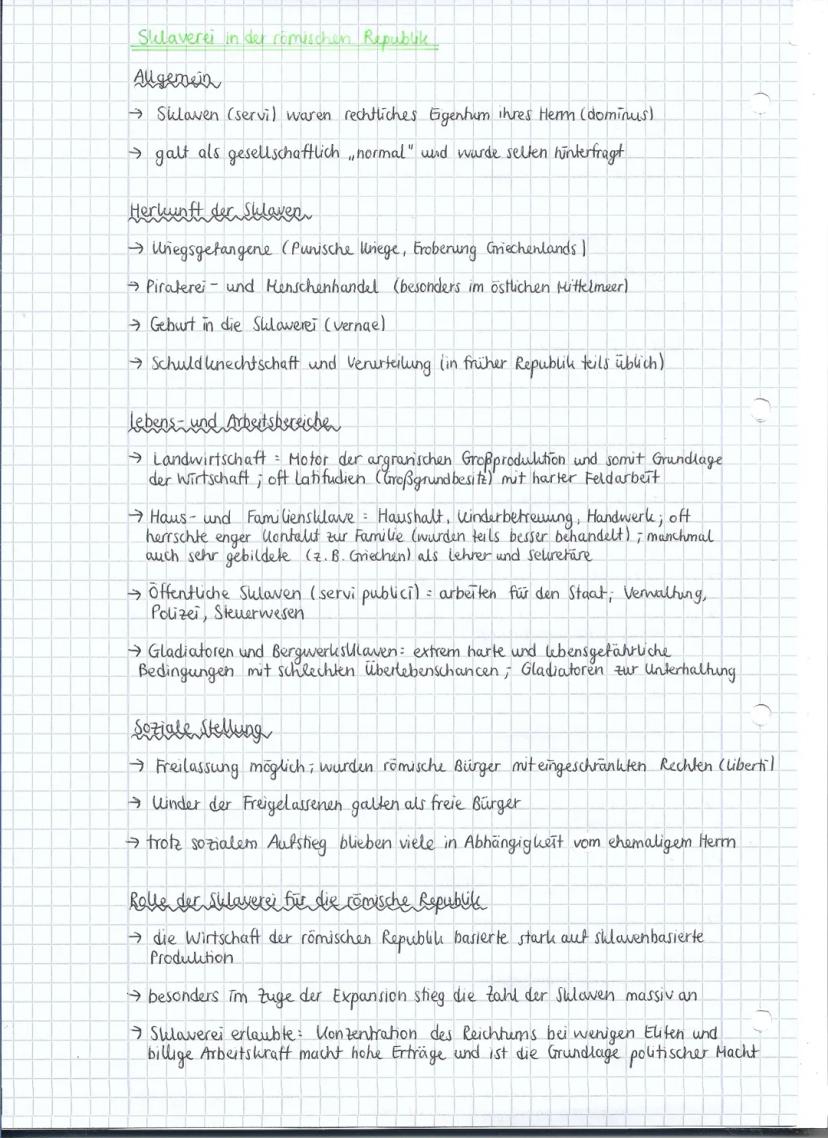 Sklaverei in der römischen Republik
Allgemein
→ Sklaven (servi) waren rechtliches Eigentum ihres Herrn (dominus)
→ galt als gesellschaftlich „normal" und wurde selten hinterfragt
Herkunft der Sklaven
→ Kriegsgefangene (Punische Kriege, Eroberung Griechenlands)
→ Piraterei- und Menschenhandel (besonders im östlichen Mittelmeer)
→ Geburt in die Sklaverei (vernae)
→ Schuldknechtschaft und Verurteilung (in früher Republik teils üblich)
Lebens- und Arbeitsbereiche
→ Landwirtschaft = Motor der argrarischen Großproduktion und somit Grundlage
der Wirtschaft; oft Latifudien (Großgrundbesitz) mit harter Feldarbeit
→ Haus- und Familiensklave = Haushalt, Kinderbetreuung, Handwerk; oft
herrschte enger Kontakt zur Familie (wurden teils besser behandelt); manchmal
auch sehr gebildete (z.B. Griechen) als Lehrer und Sekretäre
→ Öffentliche Sklaven (servi publici) = arbeiten für den Staat; Verwaltung,
Polizei, Steuerwesen
→ Gladiatoren und Bergwerksklaven: extrem harte und lebensgefährliche
Bedingungen mit schlechten Überlebenschancen; Gladiatoren zur Unterhaltung
Soziale Stellung
→ Freilassung möglich; wurden römische Bürger mit eingeschränkten Rechten (liberti)
→ Kinder der Freigelassenen galten als freie Bürger
→ trotz sozialem Aufstieg blieben viele in Abhängigkeit vom ehemaligem Herrn
Rolle der Sklaverei für die römische Republik
→ die Wirtschaft der römischen Republik basierte stark auf sklavenbasierte
Produktion
→ besonders im Zuge der Expansion stieg die Zahl der Sklaven massiv an
→ Sklaverei erlaubte: Konzentration des Reichtums bei wenigen Eliten und
billige Arbeitskraft macht hohe Erträge und ist die Grundlage politischer Macht